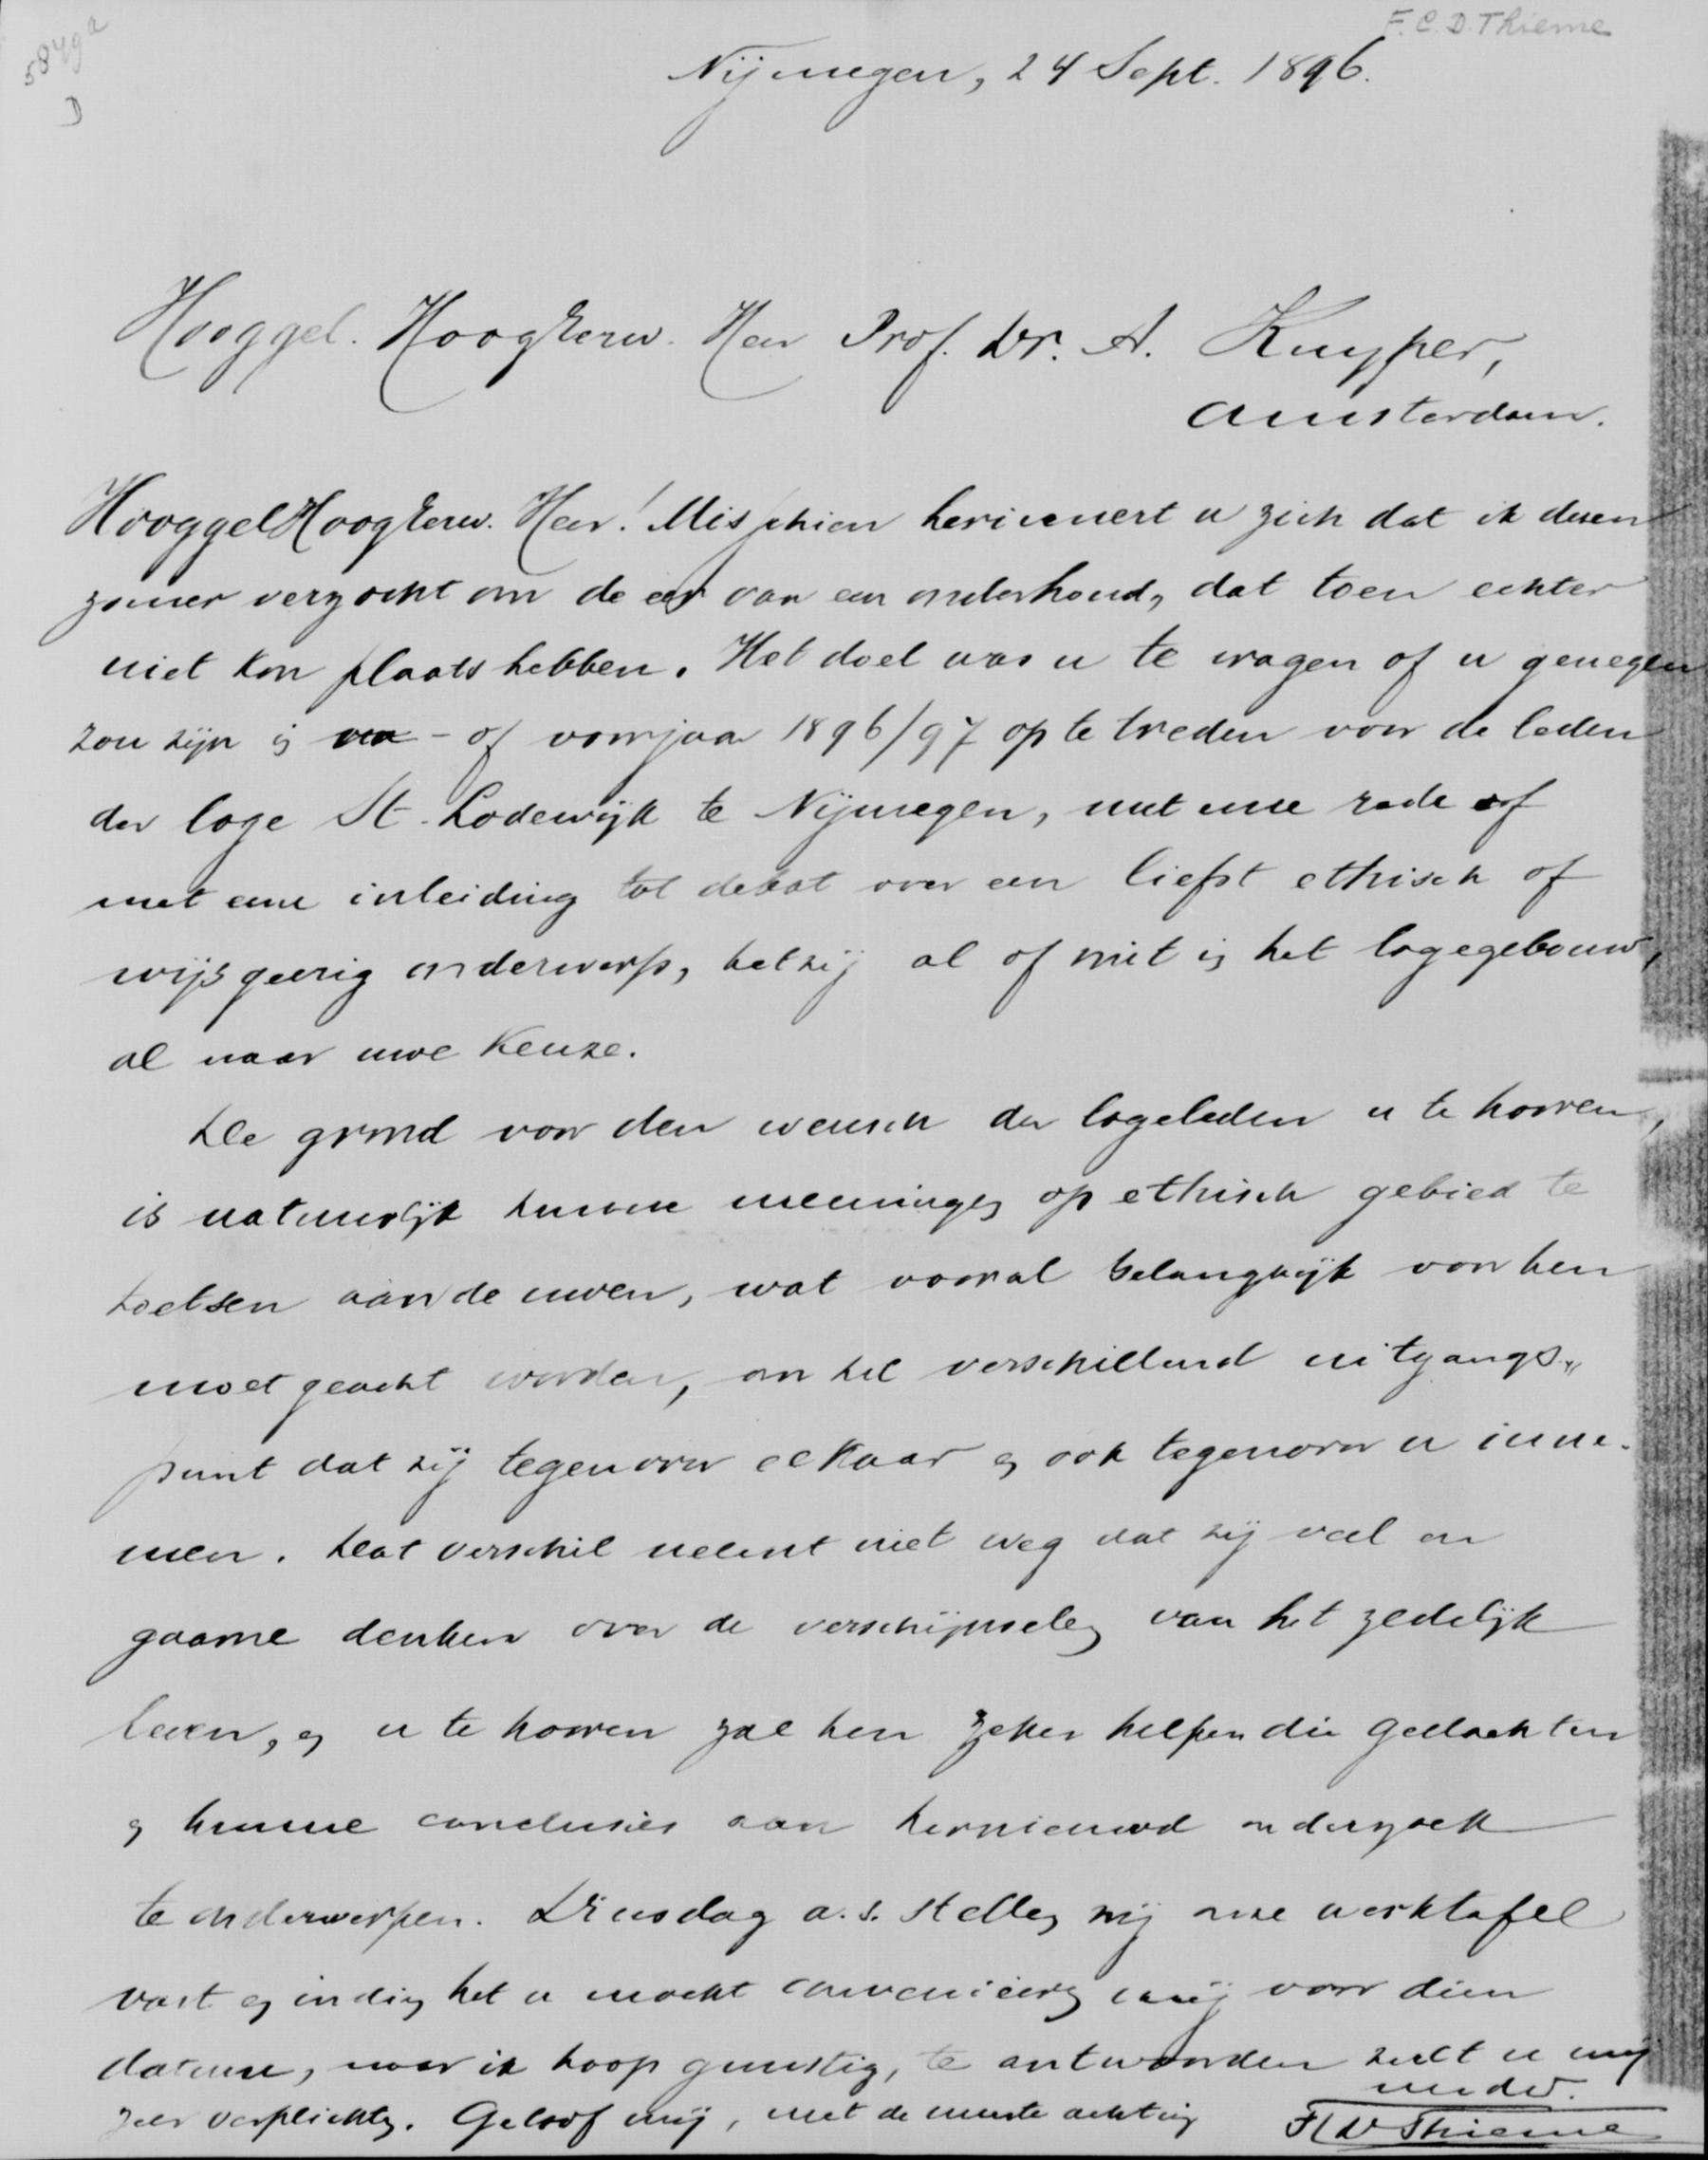 F.C.D. Thieme
5849a
D
Nijmegen, 24 Sept. 1896.
Hooggel. HoogEerw. Heer Prof. Dr. A. Kuyper,
Amsterdam.
Hooggel HoogEerw. Heer! Misschien herinnert u zich dat ik dezen
zomer verzocht om de eer van een onderhoud, dat toen echter
niet kon plaats hebben. Het doel was u te vragen of u genegen
zou zijn in na- of voorjaar 1896/97 op te treden voor de leden
der loge St. Lodewijk te Nijmegen, met eene rede of
met eene inleiding tot debat over een liefst ethisch of
wijsgeerig onderwerp, hetzij al of niet in het logegebouw,
al naar uwe keuze.
De grond voor den wensch der logeleden u te hooren,
is natuurlijk hunne meeningen op ethisch gebied te
toetsen aan de uwen, wat vooral belangrijk voor hen
moet geacht worden, om het verschillend uitgangs-
punt dat zij tegenover elkaar en ook tegenover u inne-
men. Dat verschil neemt niet weg dat zij veel en
gaarne denken over de verschijnselen van het zedelijk
leven, en u te hooren zal hen zeker helpen die gedachten
en hunne conclusies aan hernieuwd onderzoek
te onderwerpen. Dinsdag a.s. stellen wij onze werktafel
vast en indien het u mocht convenieeren mij voor dien
datum, naar ik hoop gunstig, te antwoorden zult u mij
zeer verplichten. Geloof mij, met de meeste achting
uw dw.
FCD Thieme